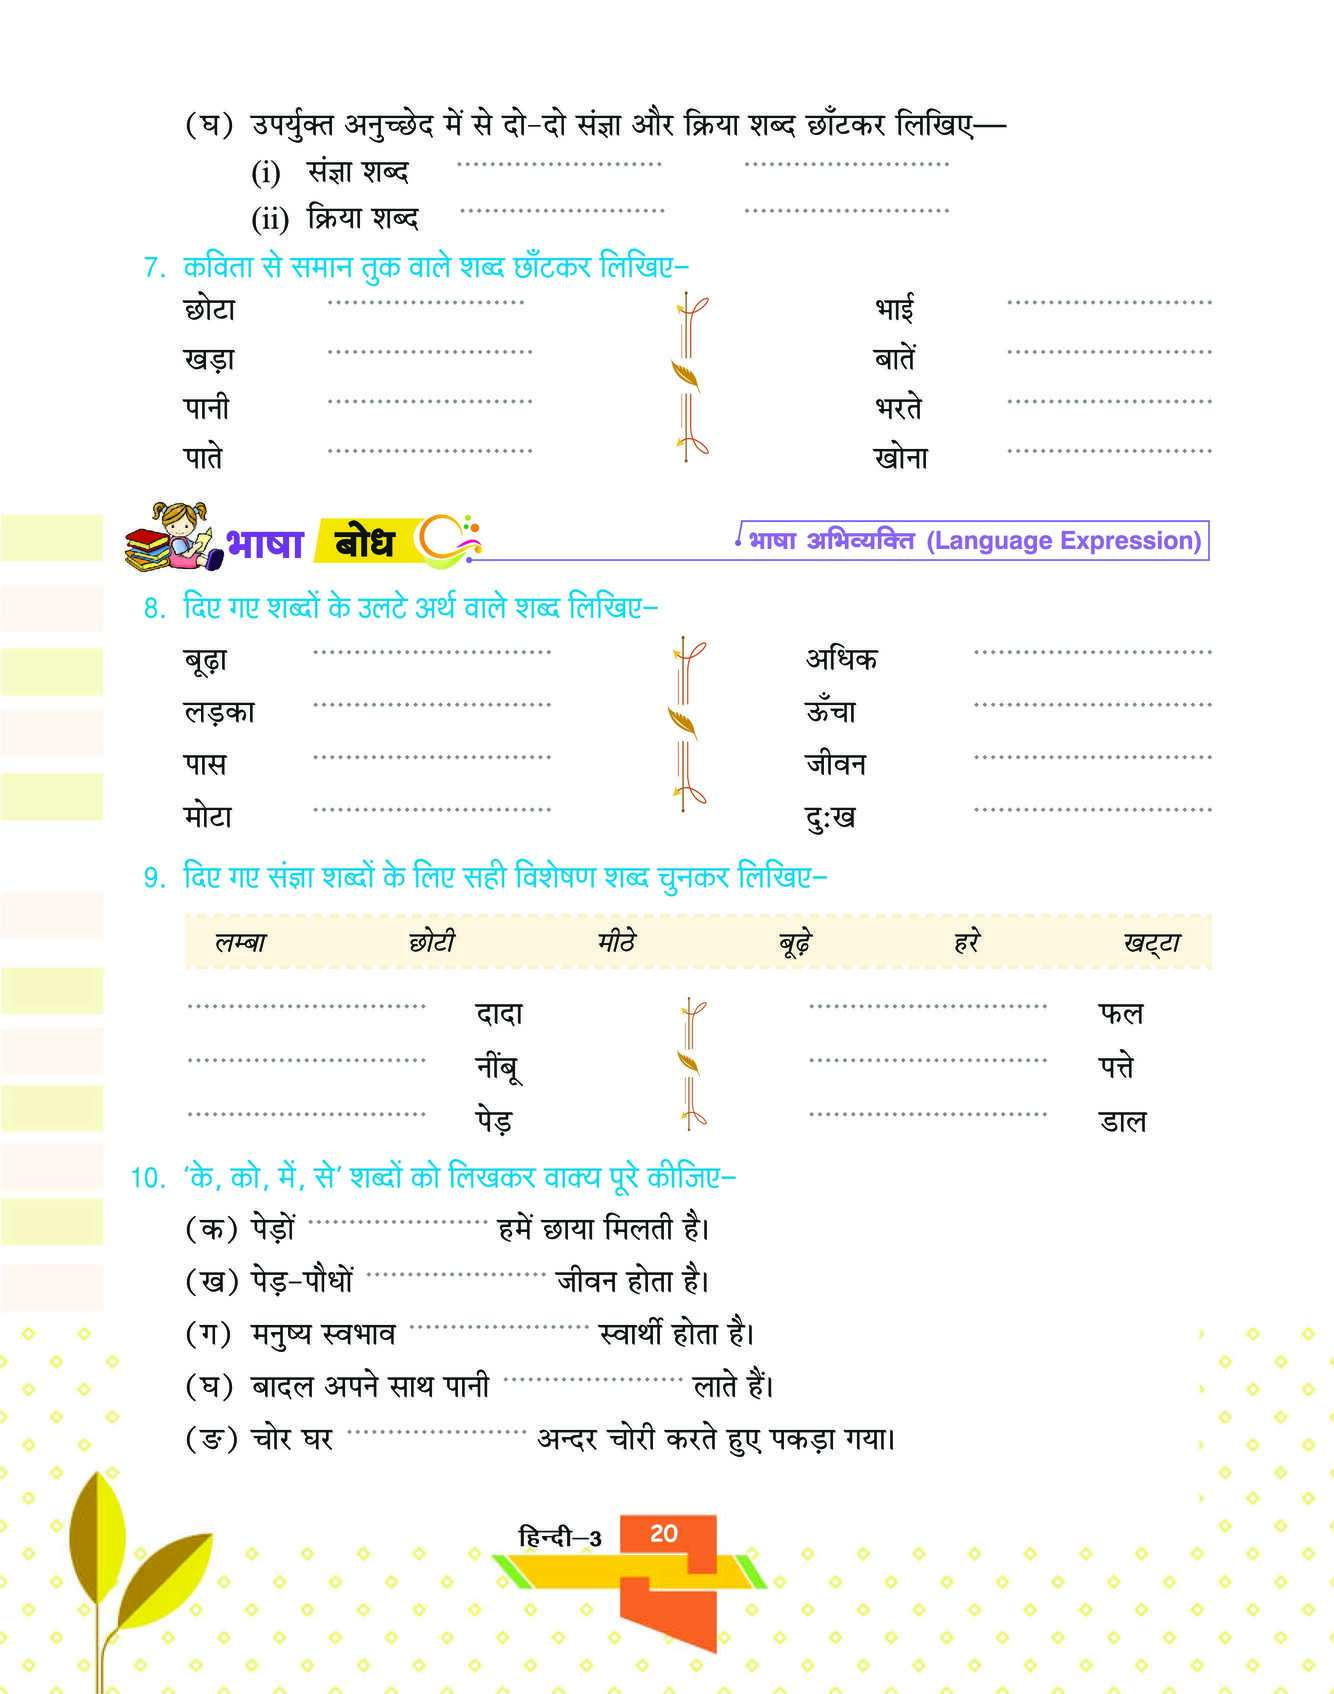 (घ) उपर्युक्त अनुच्छेद में से दो-दो संज्ञा और क्रिया शब्द छाँटकर लिखिए—
(i) संज्ञा शब्द
(ii) क्रिया शब्द
7. कविता से समान तुक वाले शब्द छाँटकर लिखिए–
छोटा भाई
खड़ा बातें
पानी भरते
पाते खोना
भाषा बोध भाषा अभिव्यक्ति (Language Expression)
8. दिए गए शब्दों के उलटे अर्थ वाले शब्द लिखिए–
बूढ़ा अधिक
लड़का ऊँचा
पास जीवन
मोटा दुःख
9. दिए गए संज्ञा शब्दों के लिए सही विशेषण शब्द चुनकर लिखिए–
लम्बा छोटी मीठे बूढ़े हरे खट्टा
दादा फल
नींबू पत्ते
पेड़ डाल
10. ‘के, को, में, से’ शब्दों को लिखकर वाक्य पूरे कीजिए–
(क) पेड़ों हमें छाया मिलती है।
(ख) पेड़-पौधों जीवन होता है।
(ग) मनुष्य स्वभाव स्वार्थी होता है।
(घ) बादल अपने साथ पानी लाते हैं।
(ङ) चोर घर अन्दर चोरी करते हुए पकड़ा गया।
हिन्दी–3 20